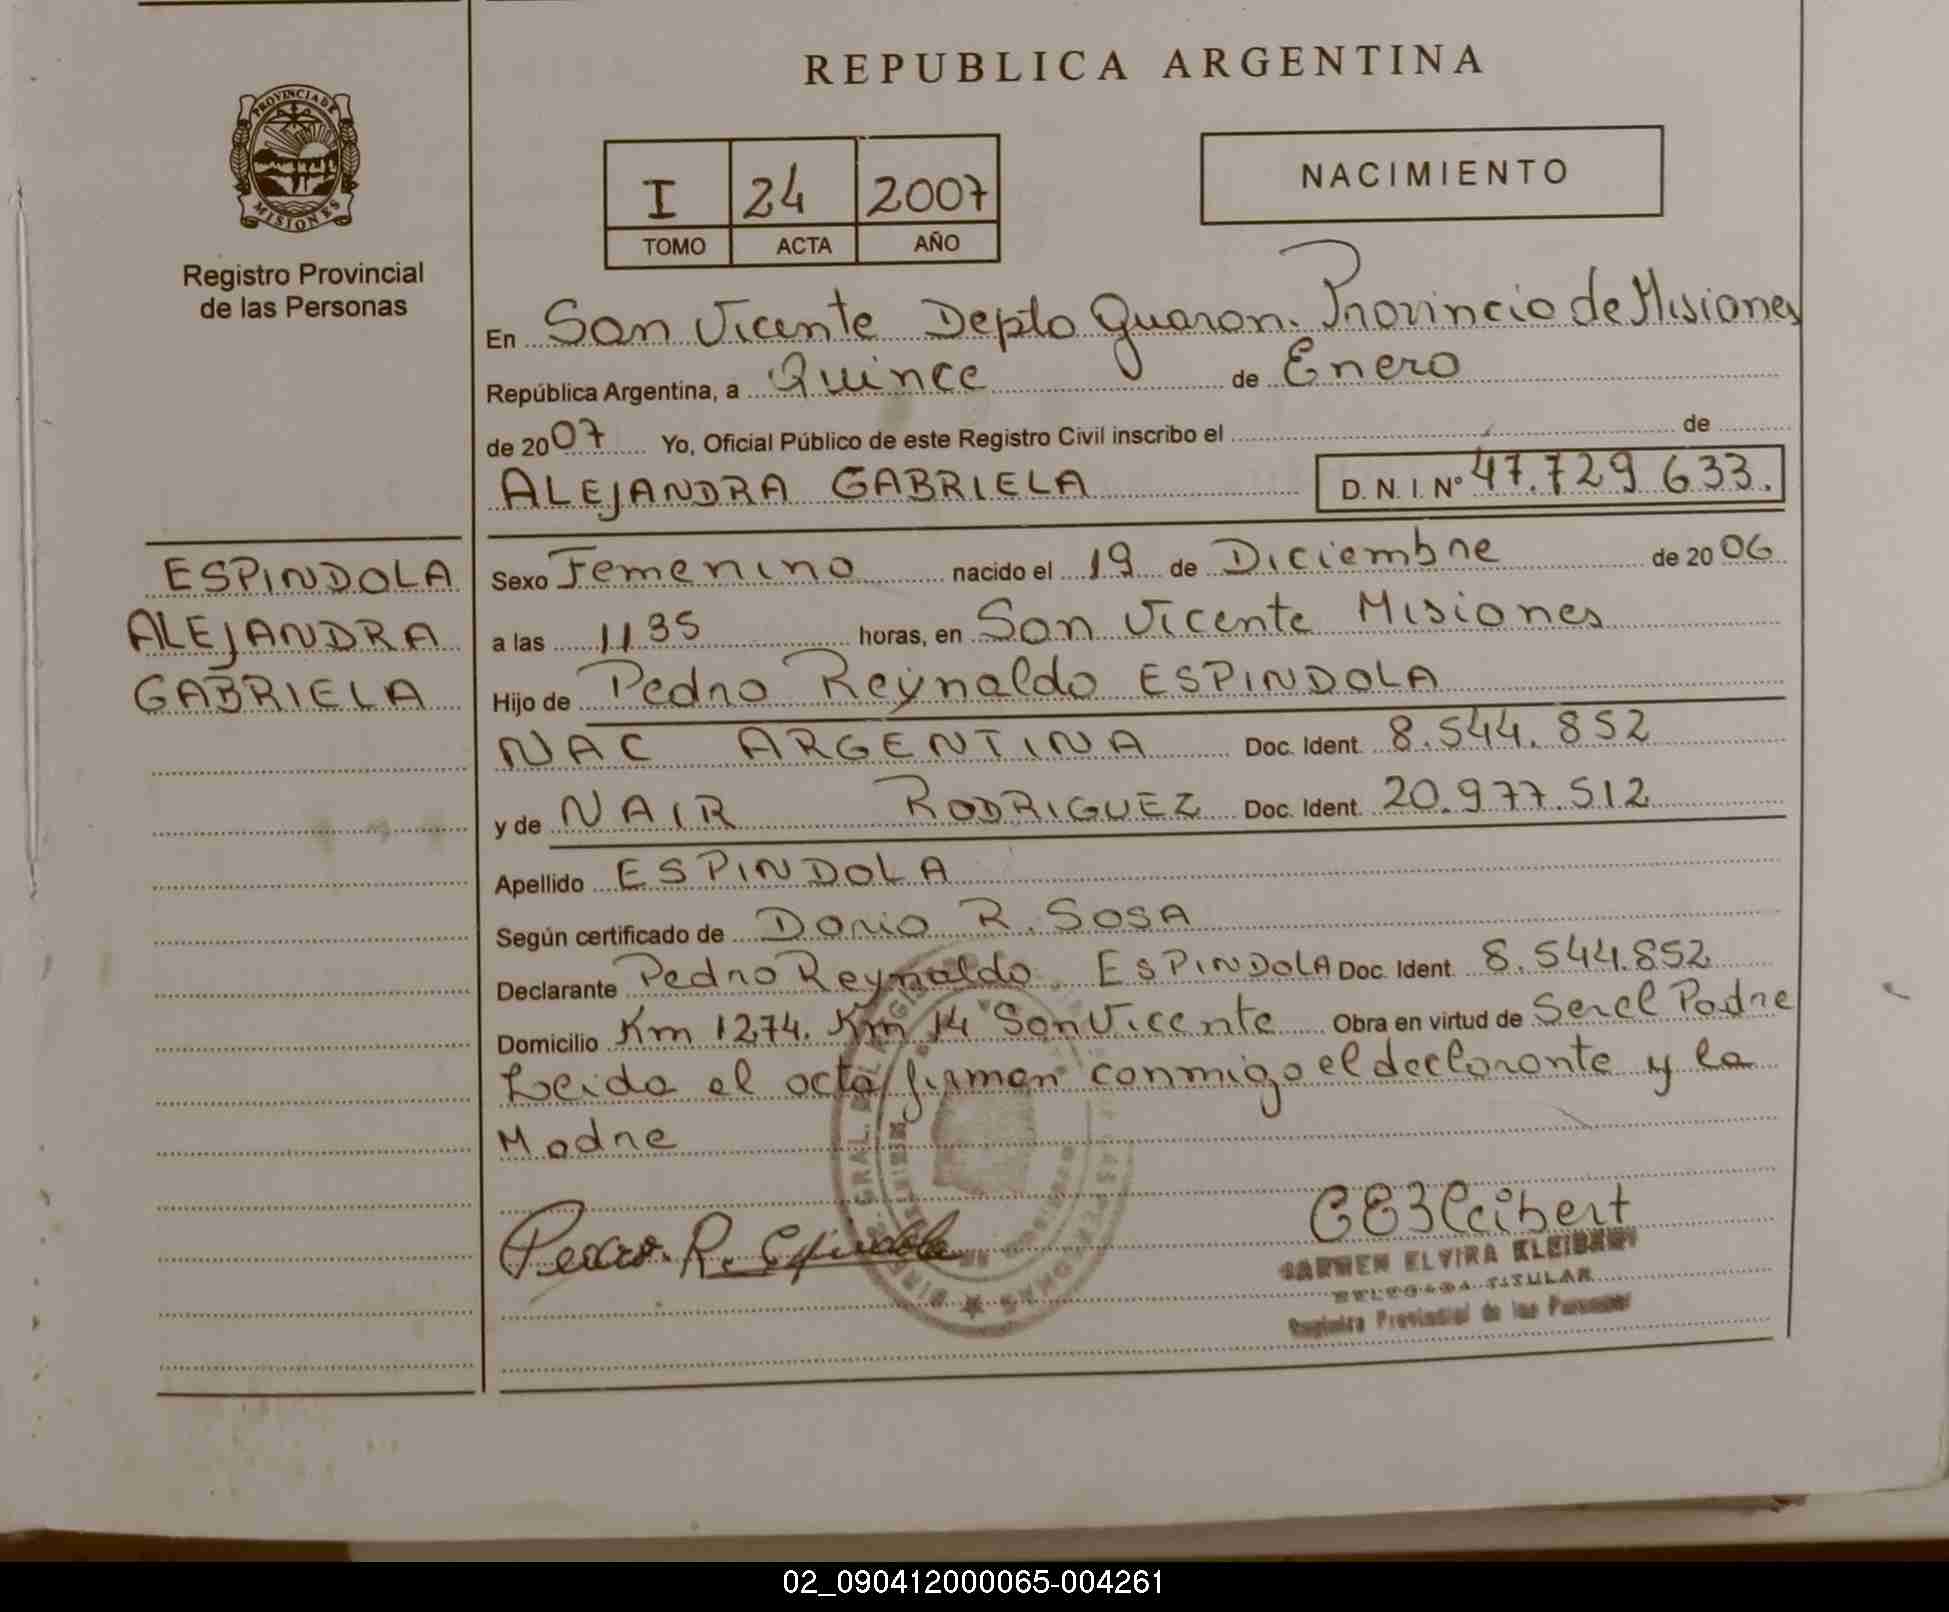 REPUBLICA ARGENTINA
PROVINCIA DE
MISIONES
Registro Provincial
de las Personas
I 24 2007
TOMO ACTA AÑO
NACIMIENTO
En San Vicente Depto Guaran. Provincia de Misiones
República Argentina, a Quince de Enero
de 2007 Yo, Oficial Público de este Registro Civil inscribo el de
ALEJANDRA GABRIELA D. N. I. Nº 47.729 633.
ESPINDOLA
ALEJANDRA
GABRIELA
Sexo Femenino nacido el 19 de Diciembre de 2006
a las 11 35 horas, en San Vicente Misiones
Hijo de Pedro Reynaldo ESPINDOLA
NAC ARGENTINA Doc. Ident. 8.544.852
y de NAIR RODRIGUEZ Doc. Ident. 20.977.512
Apellido ESPINDOLA
Según certificado de Dario R. SOSA
Declarante Pedro Reynaldo ESPINDOLA Doc. Ident. 8.544.852
Domicilio Km 1274. Km 14 San Vicente Obra en virtud de Ser el Padre
Leida el acta firman conmigo el declarante y la
Madre
Pedro R. Espindola
CEKleibert
CARMEN ELVIRA KLEIBERT
DELEGADA TITULAR
Registro Provincial de las Personas
02_090412000065-004261